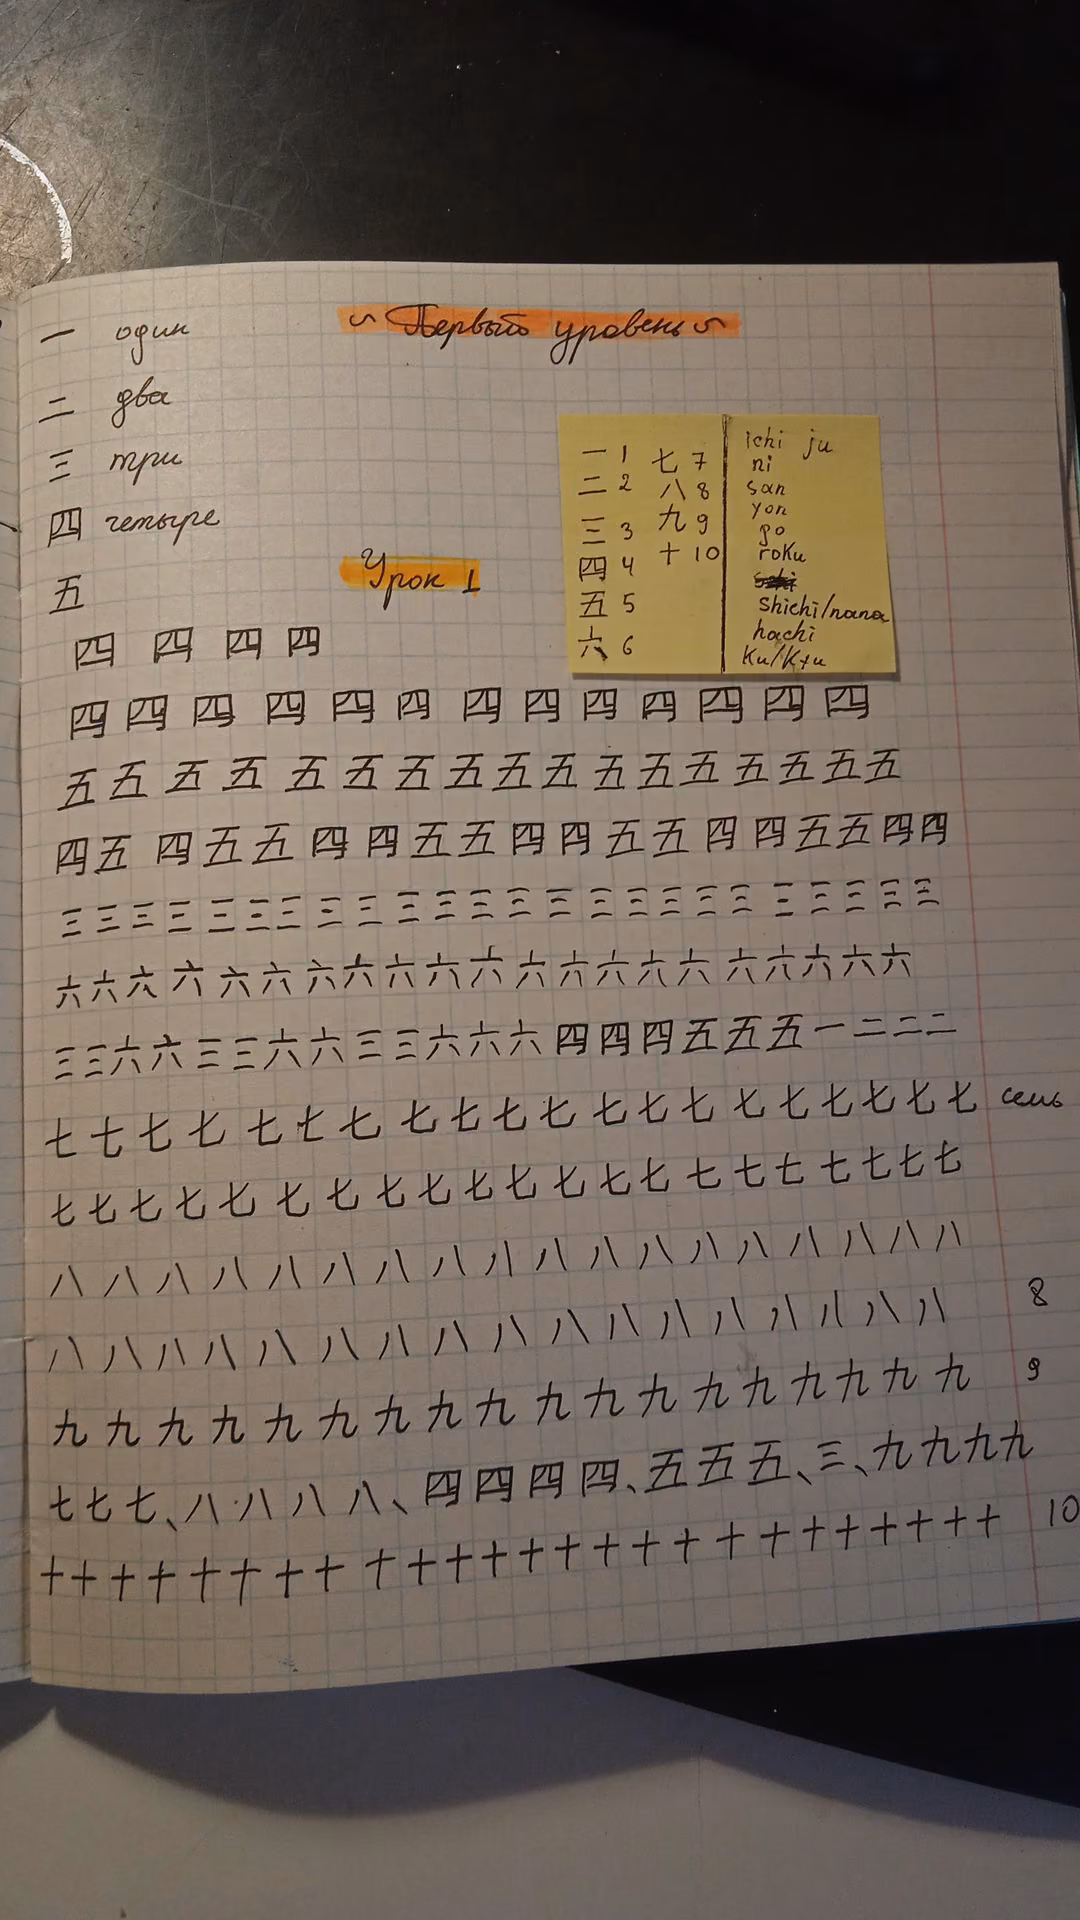 一 один
~ Первый уровень ~
二 два
三 три
四 четыре
五
Урок 1
一 1 七 7
二 2 八 8
三 3 九 9
四 4 十 10
五 5
六 6
ichi ju
ni
san
yon
go
roku
shichi/nana
hachi
Ku/Kyu
四 四 四 四
四 四 四 四 四 四 四 四 四 四 四 四 四
五 五 五 五 五 五 五 五 五 五 五 五 五 五 五 五 五
四 五 四 五 五 四 四 五 五 四 四 五 五 四 四 五 五 四 四
三 三 三 三 三 三 三 三 三 三 三 三 三 三 三 三 三 三 三 三 三 三 三 三
六 六 六 六 六 六 六 六 六 六 六 六 六 六 六 六 六 六 六 六 六
三 三 六 六 三 三 六 六 三 三 六 六 六 四 四 四 五 五 五 一 二 二 二
七 七 七 七 七 七 七 七 七 七 七 七 七 七 七 七 七 七 七 七 семь
七 七 七 七 七 七 七 七 七 七 七 七 七 七 七 七 七 七 七 七 七
八 八 八 八 八 八 八 八 八 八 八 八 八 八 八 八 八 八
八 八 八 八 八 八 八 八 八 八 八 八 八 八 八 八 八 8
九 九 九 九 九 九 九 九 九 九 九 九 九 九 九 九 九 九 9
七 七 七、八 八 八 八、四 四 四 四、五 五 五、三、九 九 九 九
十 十 十 十 十 十 十 十 十 十 十 十 十 十 十 十 十 十 十 十 十 十 十 十 10